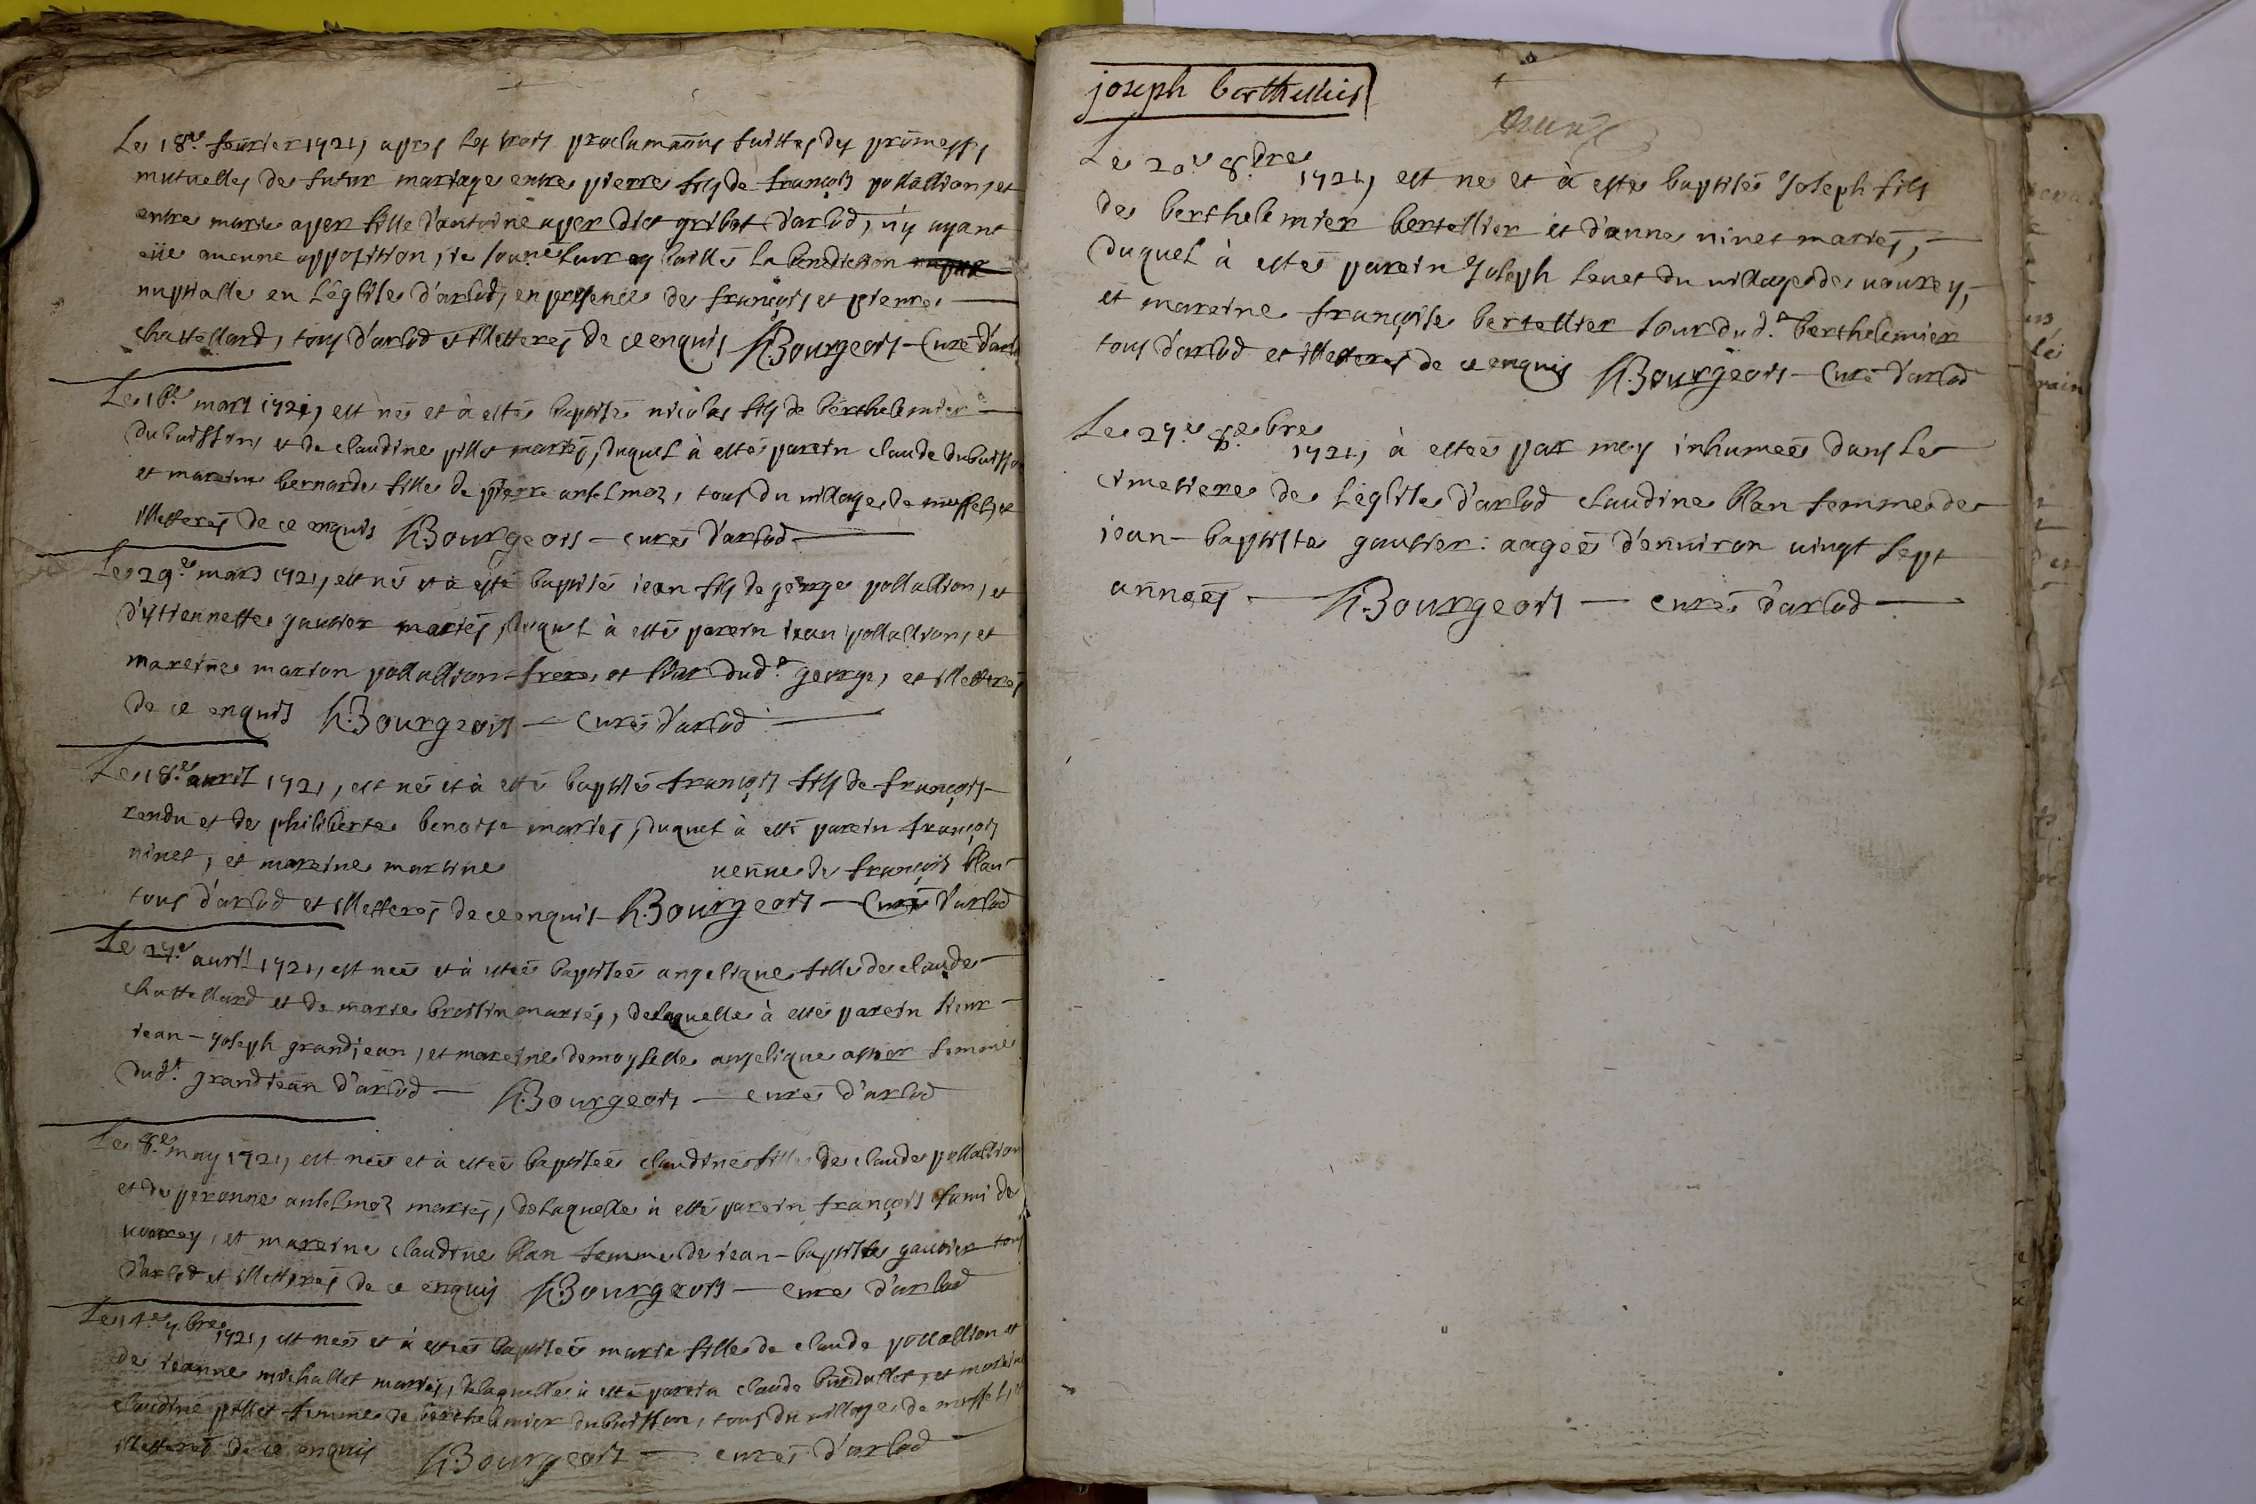 Le 18.e feurier 1721, apres les trois proclamaôns faittes des promesses
mutuelles de futur mariage entre pierre fils de françois pollallion, et
entre marie aper fille d'antoine aper dict gribot d'arlod, n'y ayant
eüe aucune opposition, ie soune baillé la benediction
nuptialle en L'église d'arlod, en presence de françois et pierre
chattellard, tous d'arlod et illetterés de ce enquis hBourgeois - Curé d'arlod
Le 16.e mars 1721, est né et à esté baptisé nicolas fils de berthelemier
dubuisson, et de claudine pillet mariés, duquel à esté parein claude dubuisson
et mareine bernarde fille de pierre anselmoz, tous du village de mussel, et
illetterés de ce enquis hBourgeois - curé d'arlod
Le 29.e mars 1721, est né et à esté baptisé iean fils de george pollallion, et
d'ytiennette gautier mariés, duquel à esté parein iean pollallion, et
mareine marion pollallion frere, et sœur dud.t george, et illetterés
de ce enquis hBourgeois - Curé d'arlod
Le 18.e auril 1721, est né et à esté baptisé françois fils de françois
rendu et de philiberte benoist mariés, duquel à esté parein françois
ninet, et mareine martine ueuue de françois blan
tous d'arlod et illetterés de ce enquis hBourgeois - Curé d'arlod
Le 27.e auril 1721, est née et à estée baptisée angelique fille de claude
chattellard et de marie brossin mariés, de laquelle à esté parein sieur
iean - Joseph grandjean, et mareine demoyselle angelique assier femme
dud.t grandiean d'arlod - hBourgeois - curé d'arlod
Le 8.e may 1721, est née et à estée baptisée claudine fille de claude pollallion
et de peronne anselmoz mariés, de laquelle à esté parein françois fami de
uourey, et mareine claudine blan femme de iean - baptiste gautier tous
d'arlod et illetterés de ce enquis hBourgeois - curé d'arlod
Le 14.e 7.bre 1721, est née et à estée baptisée marie fille de claude pollallion et
de ieanne michallet mariés, de laquelle à esté parein claude burdallet, et mareine
claudine pillet femme de berthelemier dubuisson, tous du village de mussel, et
illetterés de ce enquis hBourgeois - curé d'arlod
joseph berthellier
Le 20.e 8.bre 1721, est né et à esté baptisé Joseph fils
de berthelemier bertellier et d'anne ninet mariés,
duquel à esté parein Joseph leuet du village de uourey,
et mareine françoise bertellier sœur dud.t berthelemier
tous d'arlod et illetterés de ce enquis hBourgeois - Curé d'arlod
Le 29.e 8.bre 1721, à estée par moy inhumée dans le
cimetiere de L'église d'arlod claudine blan femme de
iean - baptiste gautier: aagée d'enuiron uingt sept
années - hBourgeois - curé d'arlod